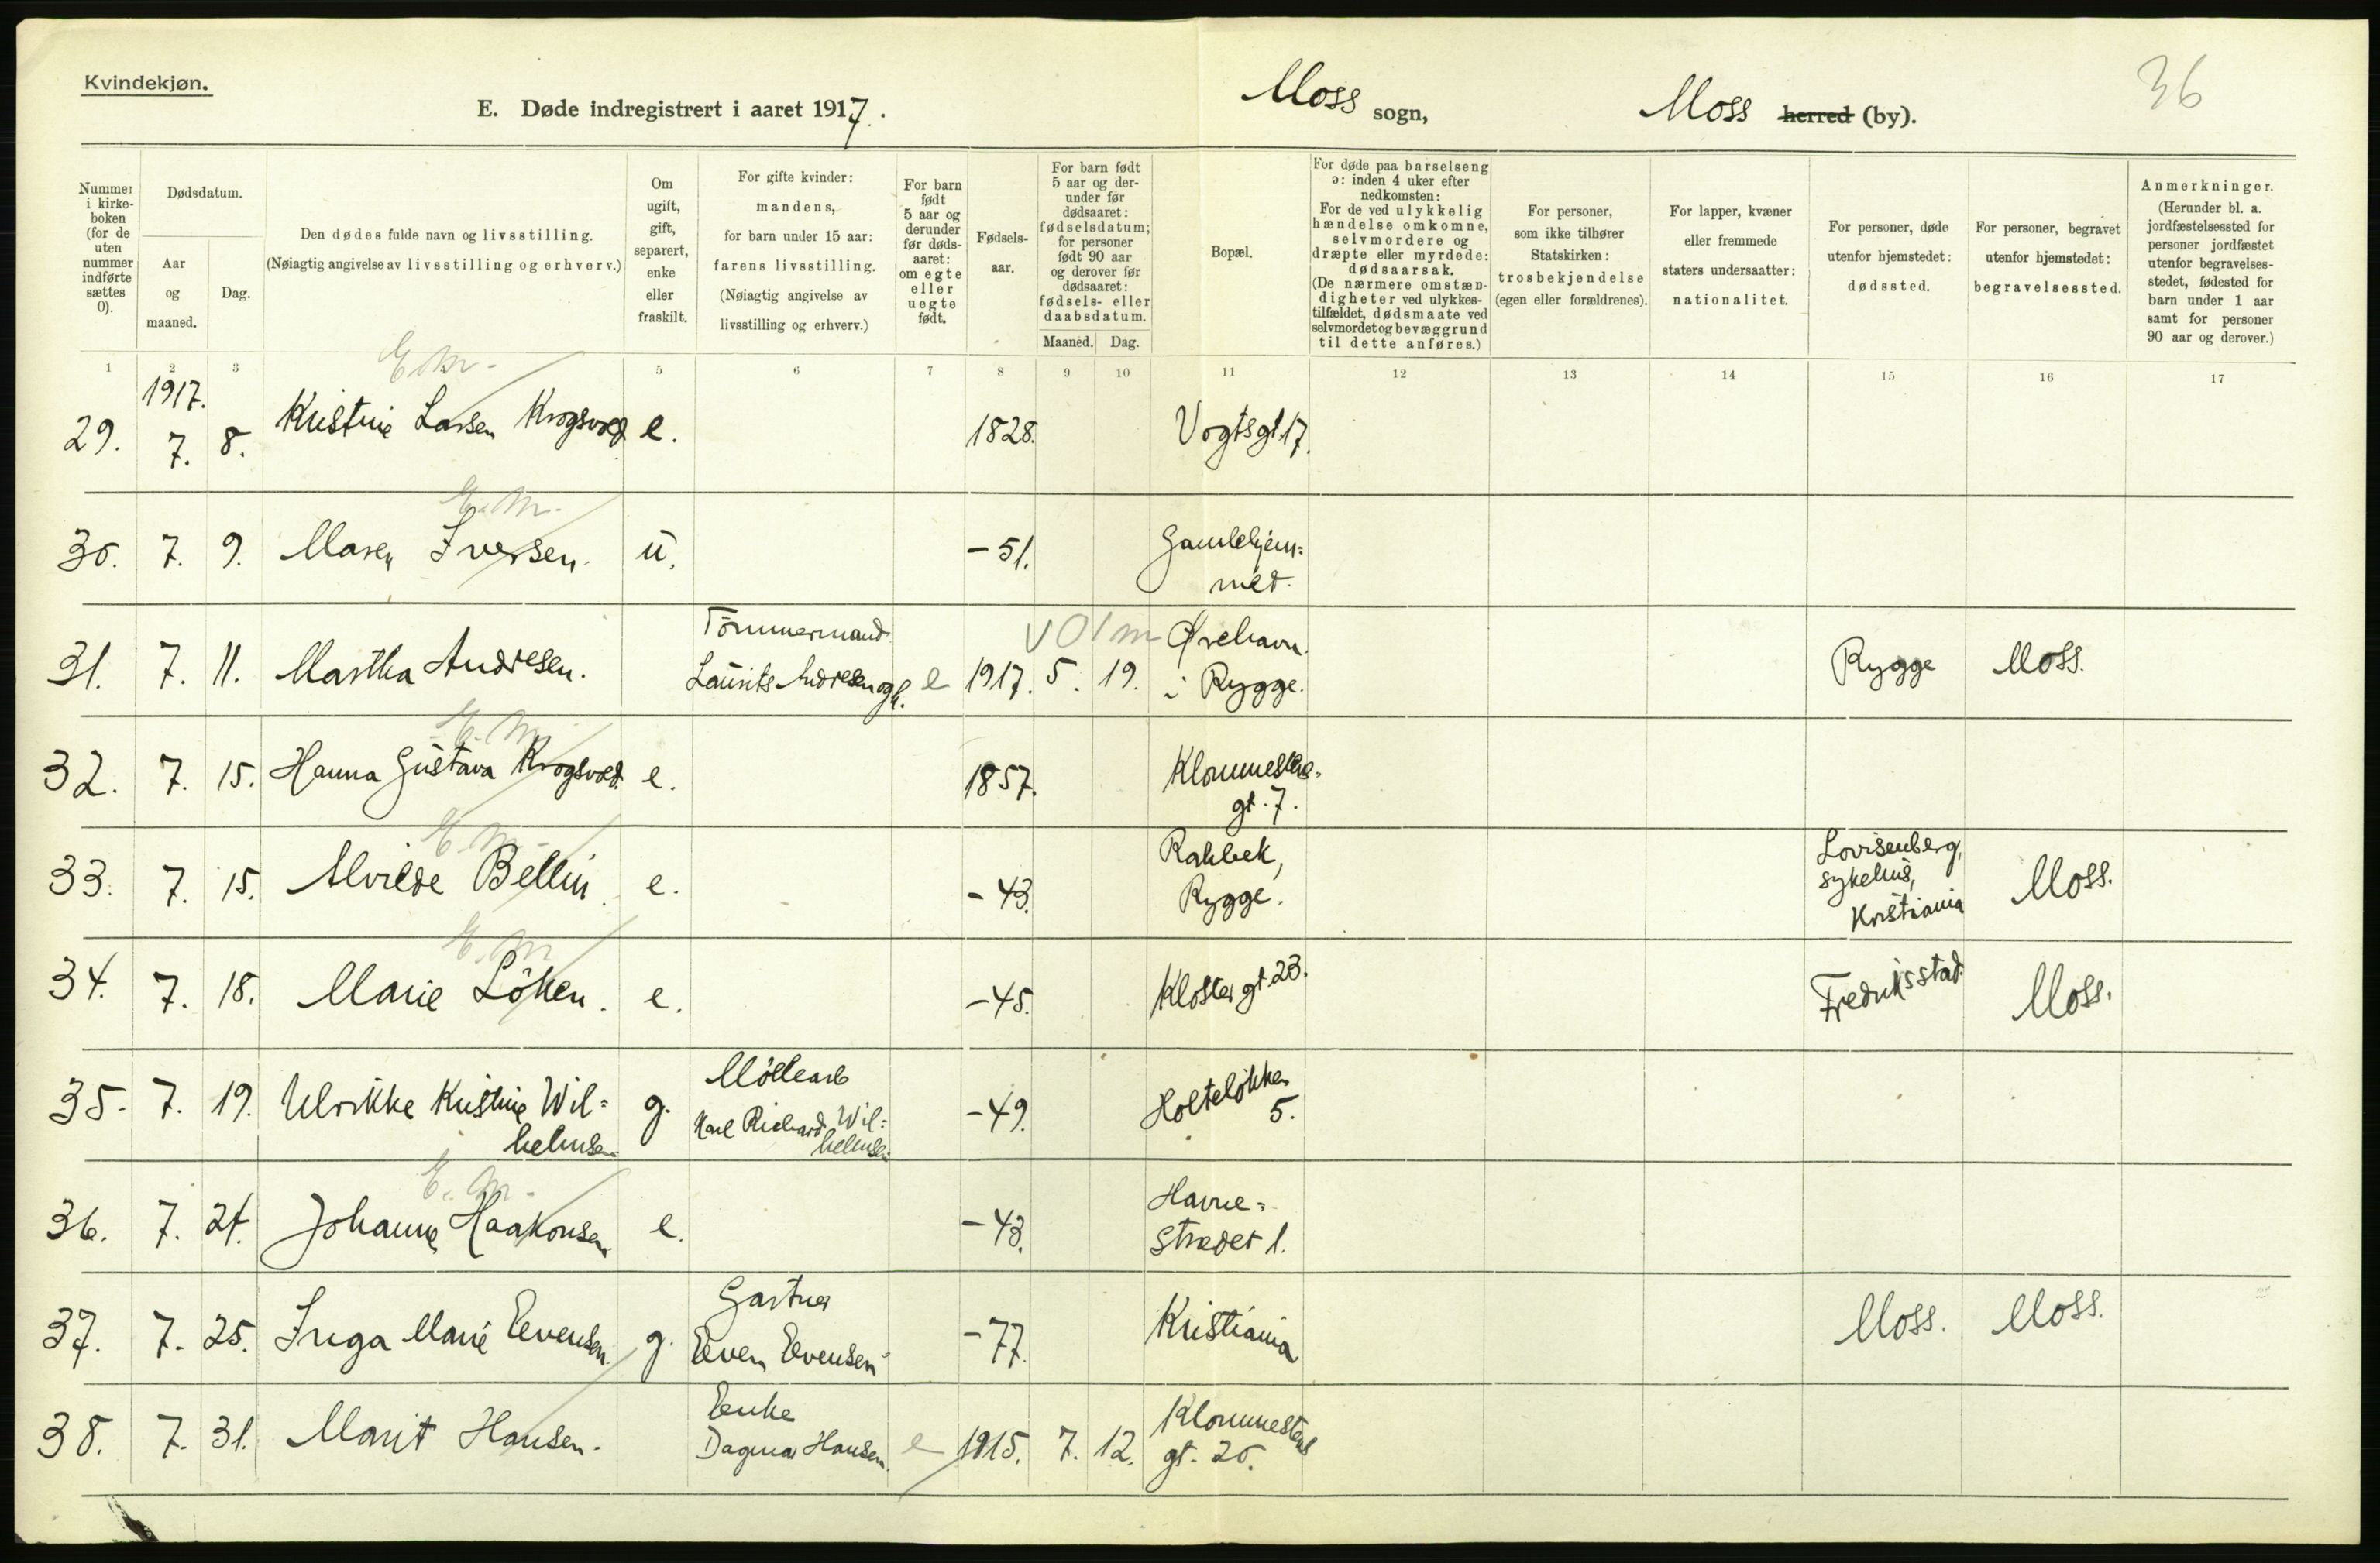 Kvindekjøn.
E. Døde indregistrert i aaret 1917.
Moss sogn,
Moss herred (by).
36
Nummer i kirkeboken (for de uten nummer indførte sættes 0).
Dødsdatum.
Aar og maaned.
Dag.
Den dødes fulde navn og livsstilling.
(Nøiagtig angivelse av livsstilling og erhverv.)
Om ugift, gift, separert, enke eller fraskilt.
For gifte kvinder: mandens, for barn under 15 aar: farens livsstilling. (Nøiagtig angivelse av livsstilling og erhverv.)
For barn født 5 aar og derunder før dødsaaret: om egte eller uegte født.
Fødselsaar.
For barn født 5 aar og derunder før dødsaaret: fødselsdatum; for personer født 90 aar og derover før dødsaaret: fødsels- eller daabsdatum.
Maaned. Dag.
Bopæl.
For døde paa barselseng ɔ: inden 4 uker efter nedkomsten: For de ved ulykkelig hændelse omkomne, selvmordere og dræpte eller myrdede: dødsaarsak. (De nærmere omstændigheter ved ulykkestilfældet, dødsmaate ved selvmordet og bevæggrund til dette anføres.)
For personer, som ikke tilhører Statskirken: trosbekjendelse (egen eller forældrenes).
For lapper, kvæner eller fremmede staters undersaatter: nationalitet.
For personer, døde utenfor hjemstedet: dødssted.
For personer, begravet utenfor hjemstedet: begravelsessted.
Anmerkninger. (Herunder bl. a. jordfæstelsessted for personer jordfæstet utenfor begravelsesstedet, fødested for barn under 1 aar samt for personer 90 aar og derover.)
1 2 3 5 6 7 8 9 10 11 12 13 14 15 16 17
E. m.
1917.
29. 7. 8. Kristine Larsen Krogsvold e. 1828. Vogtsgt 17.
E. m.
30. 7. 9. Maren Iversen. u. -51. Gamlehjem=
met.
Tömmermand v 01 m Ørehavn.
31. 7. 11. Martha Andresen. Laurits Andresen og h. e 1917. 5. 19. i Rygge. Rygge Moss.
E. m.
32. 7. 15. Hanna Gustava Krogsvold. e. 1857. Klommestens=
gt. 7.
E. m.
33. 7. 15. Alvilde Bellin. e. -43. Rahbek,
Rygge. Lovisenberg,
sykehus,
Kristiania Moss.
E. m
34. 7. 18. Marie Löken. e. -45. Kloster gt. 23. Fredriksstad. Moss.
Möllearb
35. 7. 19. Ulrikke Kristine Wil=
helmsen g. Karl Richard Wil=
helmsen -49. Holteløkken
5.
E. m.
36. 7. 24. Johanne Haakonsen e. -43. Havne=
strædet 1.
Gartner
37. 7. 25. Inga Marie Evensen. g. Even Evensen -77. Kristiania Moss. Moss.
Enke
38. 7. 31. Marit Hansen. Dagmar Hansen. e 1915. 7. 12. Klommestens
gt. 20.